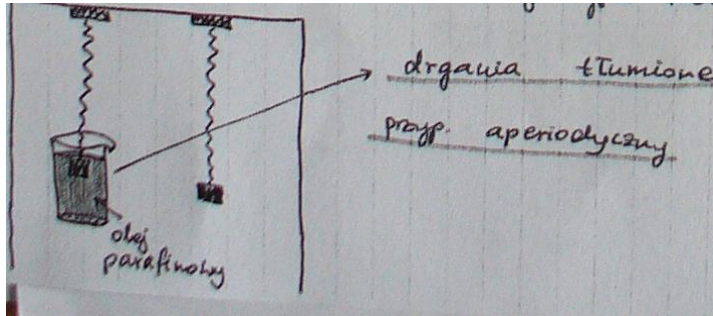 drgania tłumione
przyp. aperiodyczny
olej
parafinowy